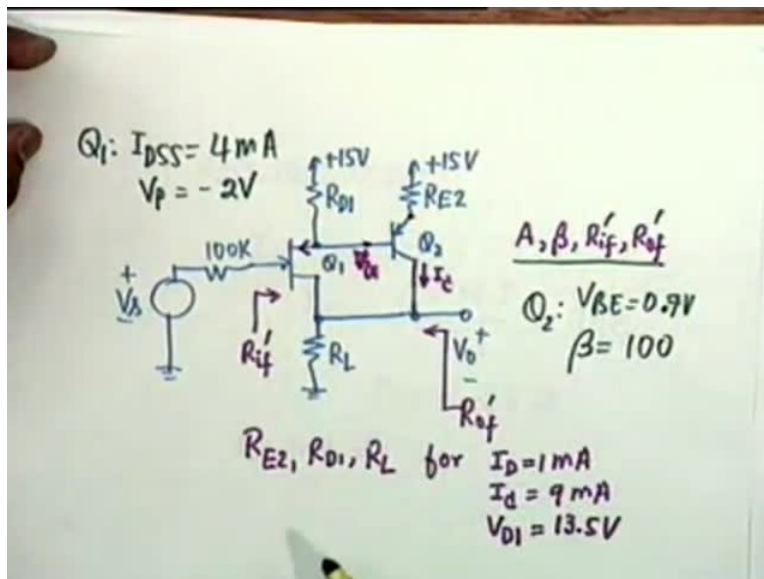 Q1: IDSS = 4mA
Vp = -2V
+15V
+15V
RD1
RE2
100K
Q1
VD1
Q2
Ic
+
Vs
-
Rif'
RL
V0
+
-
Rof'
A, β, Rif', Rof'
Q2: VBE = 0.9V
β = 100
RE2, RD1, RL for ID = 1mA
Id = 9mA
VD1 = 13.5V